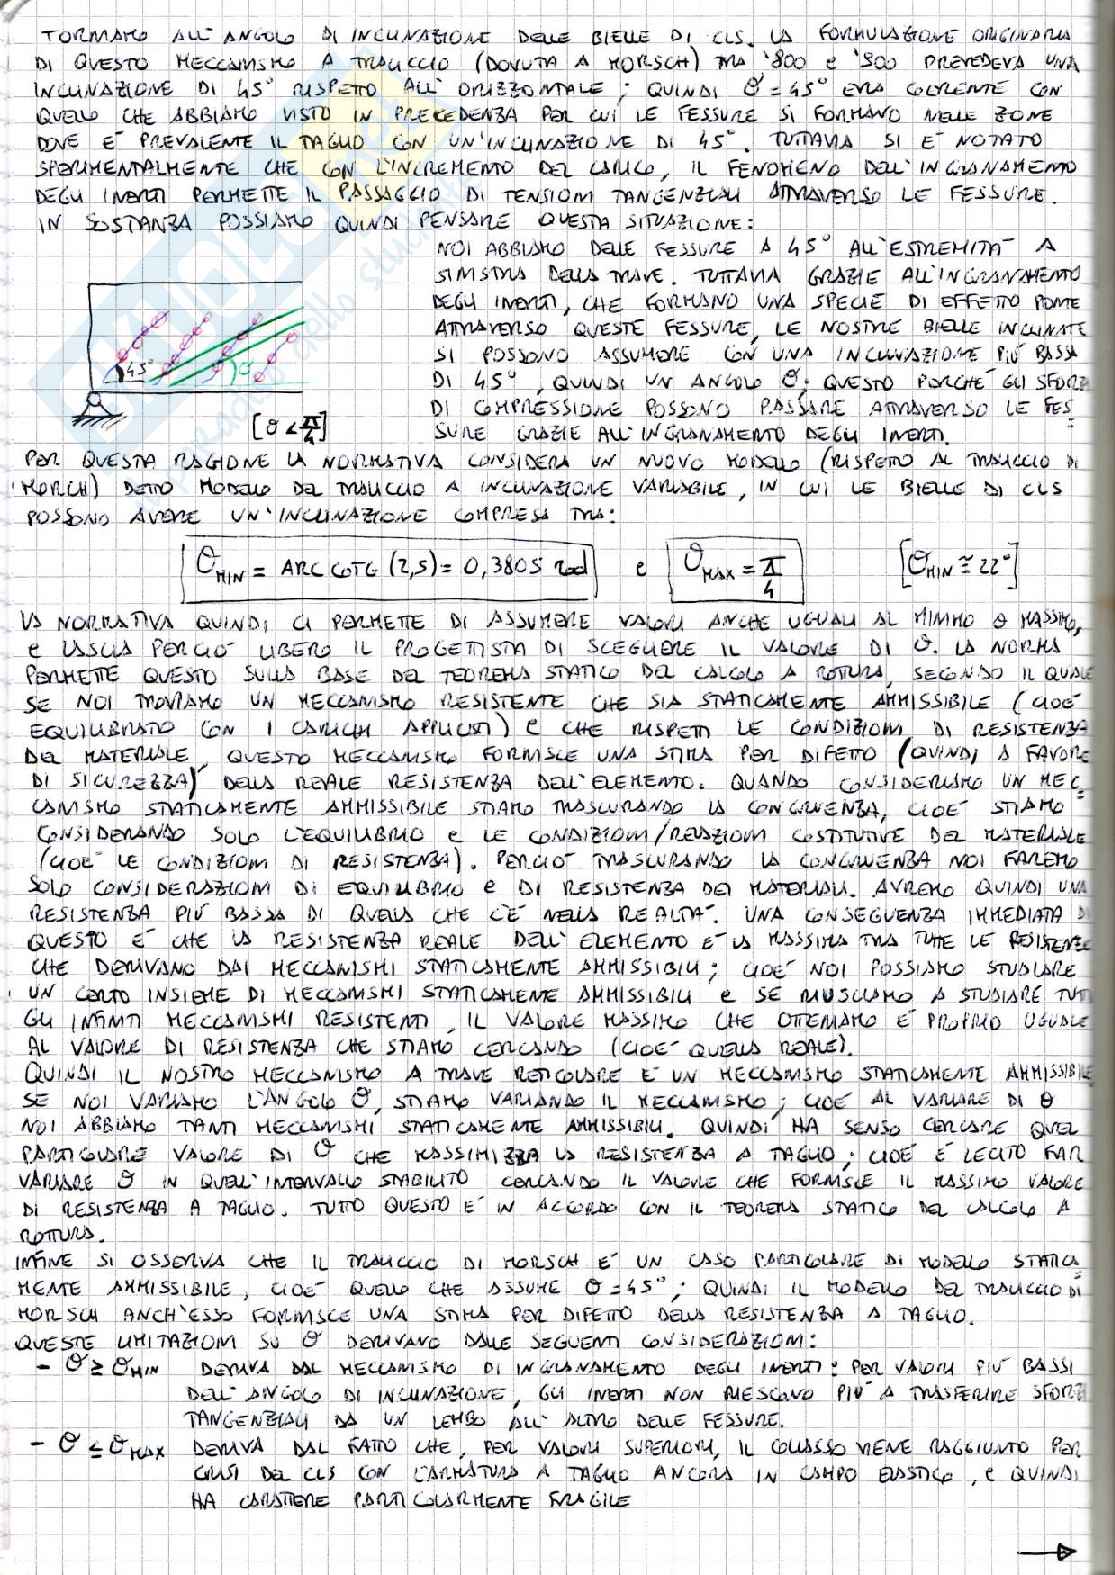 TORNIAMO ALL'ANGOLO DI INCLINAZIONE DELLE BIELLE DI CLS. LA FORMULAZIONE ORIGINARIA
DI QUESTO MECCANISMO A TRALICCIO (DOVUTA A MORSCH) TRA '800 E '900 PREVEDEVA UNA
INCLINAZIONE DI 45° RISPETTO ALL'ORIZZONTALE; QUINDI θ=45° ERA COERENTE CON
QUELLO CHE ABBIAMO VISTO IN PRECEDENZA PER CUI LE FESSURE SI FORMANO NELLE ZONE
DOVE E' PREVALENTE IL TAGLIO CON UN'INCLINAZIONE DI 45°. TUTTAVIA SI E' NOTATO
SPERIMENTALMENTE CHE CON L'INCREMENTO DEL CARICO, IL FENOMENO DELL'INGRANAMENTO
DEGLI INERTI PERMETTE IL PASSAGGIO DI TENSIONI TANGENZIALI ATTRAVERSO LE FESSURE.
IN SOSTANZA POSSIAMO QUINDI PENSARE QUESTA SITUAZIONE:
NOI ABBIAMO DELLE FESSURE A 45° ALL'ESTREMITA' A
SINISTRA DELLA TRAVE. TUTTAVIA GRAZIE ALL'INGRANAMENTO
DEGLI INERTI, CHE FORMANO UNA SPECIE DI EFFETTO PONTE
ATTRAVERSO QUESTE FESSURE, LE NOSTRE BIELLE INCLINATE
SI POSSONO ASSUMERE CON UNA INCLINAZIONE PIÙ BASSA
DI 45°, QUINDI UN ANGOLO θ; QUESTO PERCHE' GLI SFORZI
DI COMPRESSIONE POSSONO PASSARE ATTRAVERSO LE FES-
SURE GRAZIE ALL'INGRANAMENTO DEGLI INERTI.
45°
θ
[θ < π/4]
PER QUESTA RAGIONE LA NORMATIVA CONSIDERA UN NUOVO MODELLO (RISPETTO AL TRALICCIO DI
MORCH) DETTO MODELLO DEL TRALICCIO A INCLINAZIONE VARIABILE, IN CUI LE BIELLE DI CLS
POSSONO AVERE UN'INCLINAZIONE COMPRESA TRA:
θMIN = ARCCOTG (2,5) = 0,3805 rad e θMAX = π/4 [θMIN ≅ 22°]
LA NORMATIVA QUINDI CI PERMETTE DI ASSUMERE VALORI ANCHE UGUALI AL MINIMO O MASSIMO,
E LASCIA PERCIO' LIBERO IL PROGETTISTA DI SCEGLIERE IL VALORE DI θ. LA NORMA
PERMETTE QUESTO SULLA BASE DEL TEOREMA STATICO DEL CALCOLO A ROTTURA, SECONDO IL QUALE
SE NOI TROVIAMO UN MECCANISMO RESISTENTE CHE SIA STATICAMENTE AMMISSIBILE (CIOE'
EQUILIBRATO CON I CARICHI APPLICATI) E CHE RISPETTI LE CONDIZIONI DI RESISTENZA
DEL MATERIALE, QUESTO MECCANISMO FORNISCE UNA STIMA PER DIFETTO (QUINDI A FAVORE
DI SICUREZZA) DELLA REALE RESISTENZA DELL'ELEMENTO. QUANDO CONSIDERIAMO UN MEC-
CANISMO STATICAMENTE AMMISSIBILE STIAMO TRASCURANDO LA CONGRUENZA, CIOE' STIAMO
CONSIDERANDO SOLO L'EQUILIBRIO E LE CONDIZIONI/RELAZIONI COSTITUTIVE DEL MATERIALE
(CIOE' LE CONDIZIONI DI RESISTENZA). PERCIO' TRASCURANDO LA CONGRUENZA NOI FAREMO
SOLO CONSIDERAZIONI DI EQUILIBRIO E DI RESISTENZA DEI MATERIALI. AVREMO QUINDI UNA
RESISTENZA PIÙ BASSA DI QUELLA CHE C'E' NELLA REALTA'. UNA CONSEGUENZA IMMEDIATA DI
QUESTO E' CHE LA RESISTENZA REALE DELL'ELEMENTO E' LA MASSIMA TRA TUTTE LE RESISTENZE
CHE DERIVANO DAI MECCANISMI STATICAMENTE AMMISSIBILI; CIOE' NOI POSSIAMO STUDIARE
UN CERTO INSIEME DI MECCANISMI STATICAMENTE AMMISSIBILI E SE RIUSCIAMO A STUDIARE TUTTI
GLI INFINITI MECCANISMI RESISTENTI, IL VALORE MASSIMO CHE OTTENIAMO E' PROPRIO UGUALE
AL VALORE DI RESISTENZA CHE STIAMO CERCANDO (CIOE' QUELLA REALE).
QUINDI IL NOSTRO MECCANISMO A TRAVE RETICOLARE E' UN MECCANISMO STATICAMENTE AMMISSIBILE
SE NOI VARIAMO L'ANGOLO θ, STIAMO VARIANDO IL MECCANISMO; CIOE' AL VARIARE DI θ
NOI ABBIAMO TANTI MECCANISMI STATICAMENTE AMMISSIBILI. QUINDI HA SENSO CERCARE QUEL
PARTICOLARE VALORE DI θ CHE MASSIMIZZA LA RESISTENZA A TAGLIO; CIOE' E' LECITO FAR
VARIARE θ IN QUELL'INTERVALLO STABILITO CERCANDO IL VALORE CHE FORNISCE IL MASSIMO VALORE
DI RESISTENZA A TAGLIO. TUTTO QUESTO E' IN ACCORDO CON IL TEOREMA STATICO DEL CALCOLO A
ROTTURA.
INFINE SI OSSERVA CHE IL TRALICCIO DI MORSCH E' UN CASO PARTICOLARE DI MODELLO STATICA-
MENTE AMMISSIBILE, CIOE' QUELLO CHE ASSUME θ=45°; QUINDI IL MODELLO DEL TRALICCIO DI
MORSCH ANCH'ESSO FORNISCE UNA STIMA PER DIFETTO DELLA RESISTENZA A TAGLIO.
QUESTE LIMITAZIONI SU θ DERIVANO DALLE SEGUENTI CONSIDERAZIONI:
- θ ≥ θMIN DERIVA DAL MECCANISMO DI INGRANAMENTO DEGLI INERTI: PER VALORI PIÙ BASSI
DELL'ANGOLO DI INCLINAZIONE, GLI INERTI NON RIESCONO PIÙ A TRASFERIRE SFORZI
TANGENZIALI DA UN LEMBO ALL'ALTRO DELLE FESSURE.
- θ ≤ θMAX DERIVA DAL FATTO CHE, PER VALORI SUPERIORI, IL COLLASSO VIENE RAGGIUNTO PER
CRISI DEL CLS CON L'ARMATURA A TAGLIO ANCORA IN CAMPO ELASTICO, E QUINDI
HA CARATTERE PARTICOLARMENTE FRAGILE